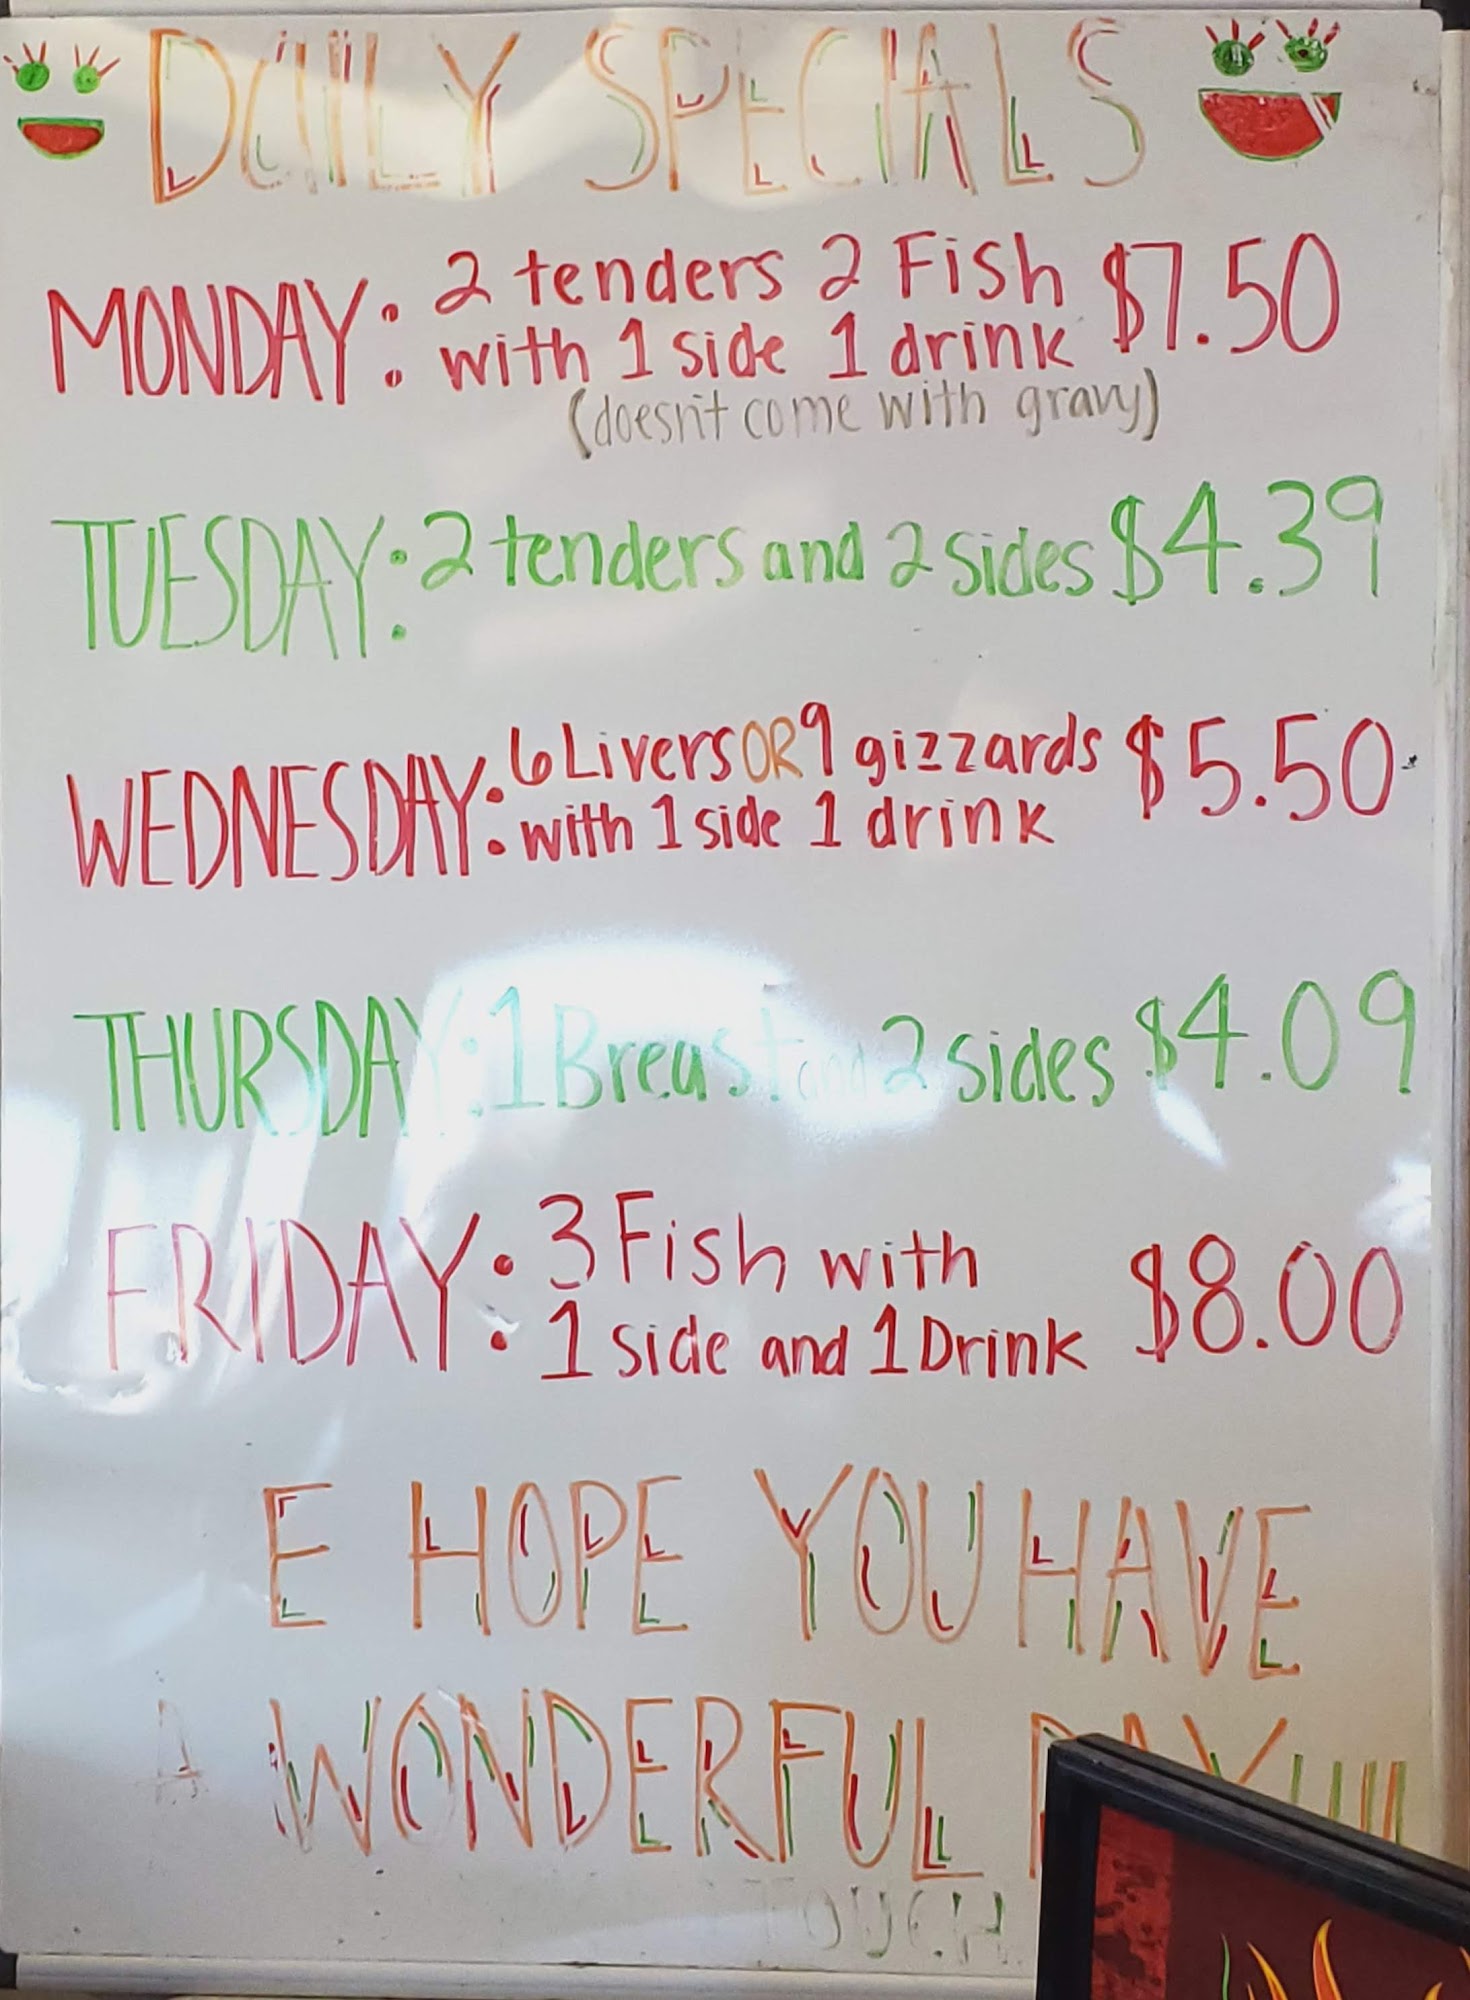 DAILY SPECIALS
MONDAY: 2 tenders 2 Fish $7.50
with 1 side 1 drink
(doesn't come with gravy)
TUESDAY: 2 tenders and 2 sides $4.39
WEDNESDAY: 6 Livers OR 9 gizzards $5.50
with 1 side 1 drink
THURSDAY: 1 Breast and 2 sides $4.09
FRIDAY: 3 Fish with $8.00
1 side and 1 Drink
E HOPE YOU HAVE
A WONDERFUL DAY!!!!
TOUCH